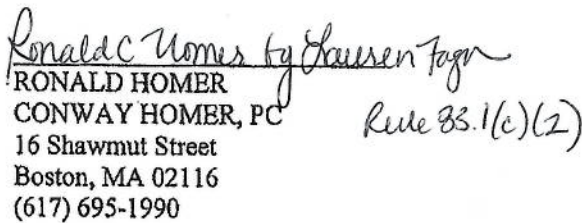 Ronald C Homer by Lauren Faga
RONALD HOMER
CONWAY HOMER, PC
Rule 83.1(c)(2)
16 Shawmut Street
Boston, MA 02116
(617) 695-1990